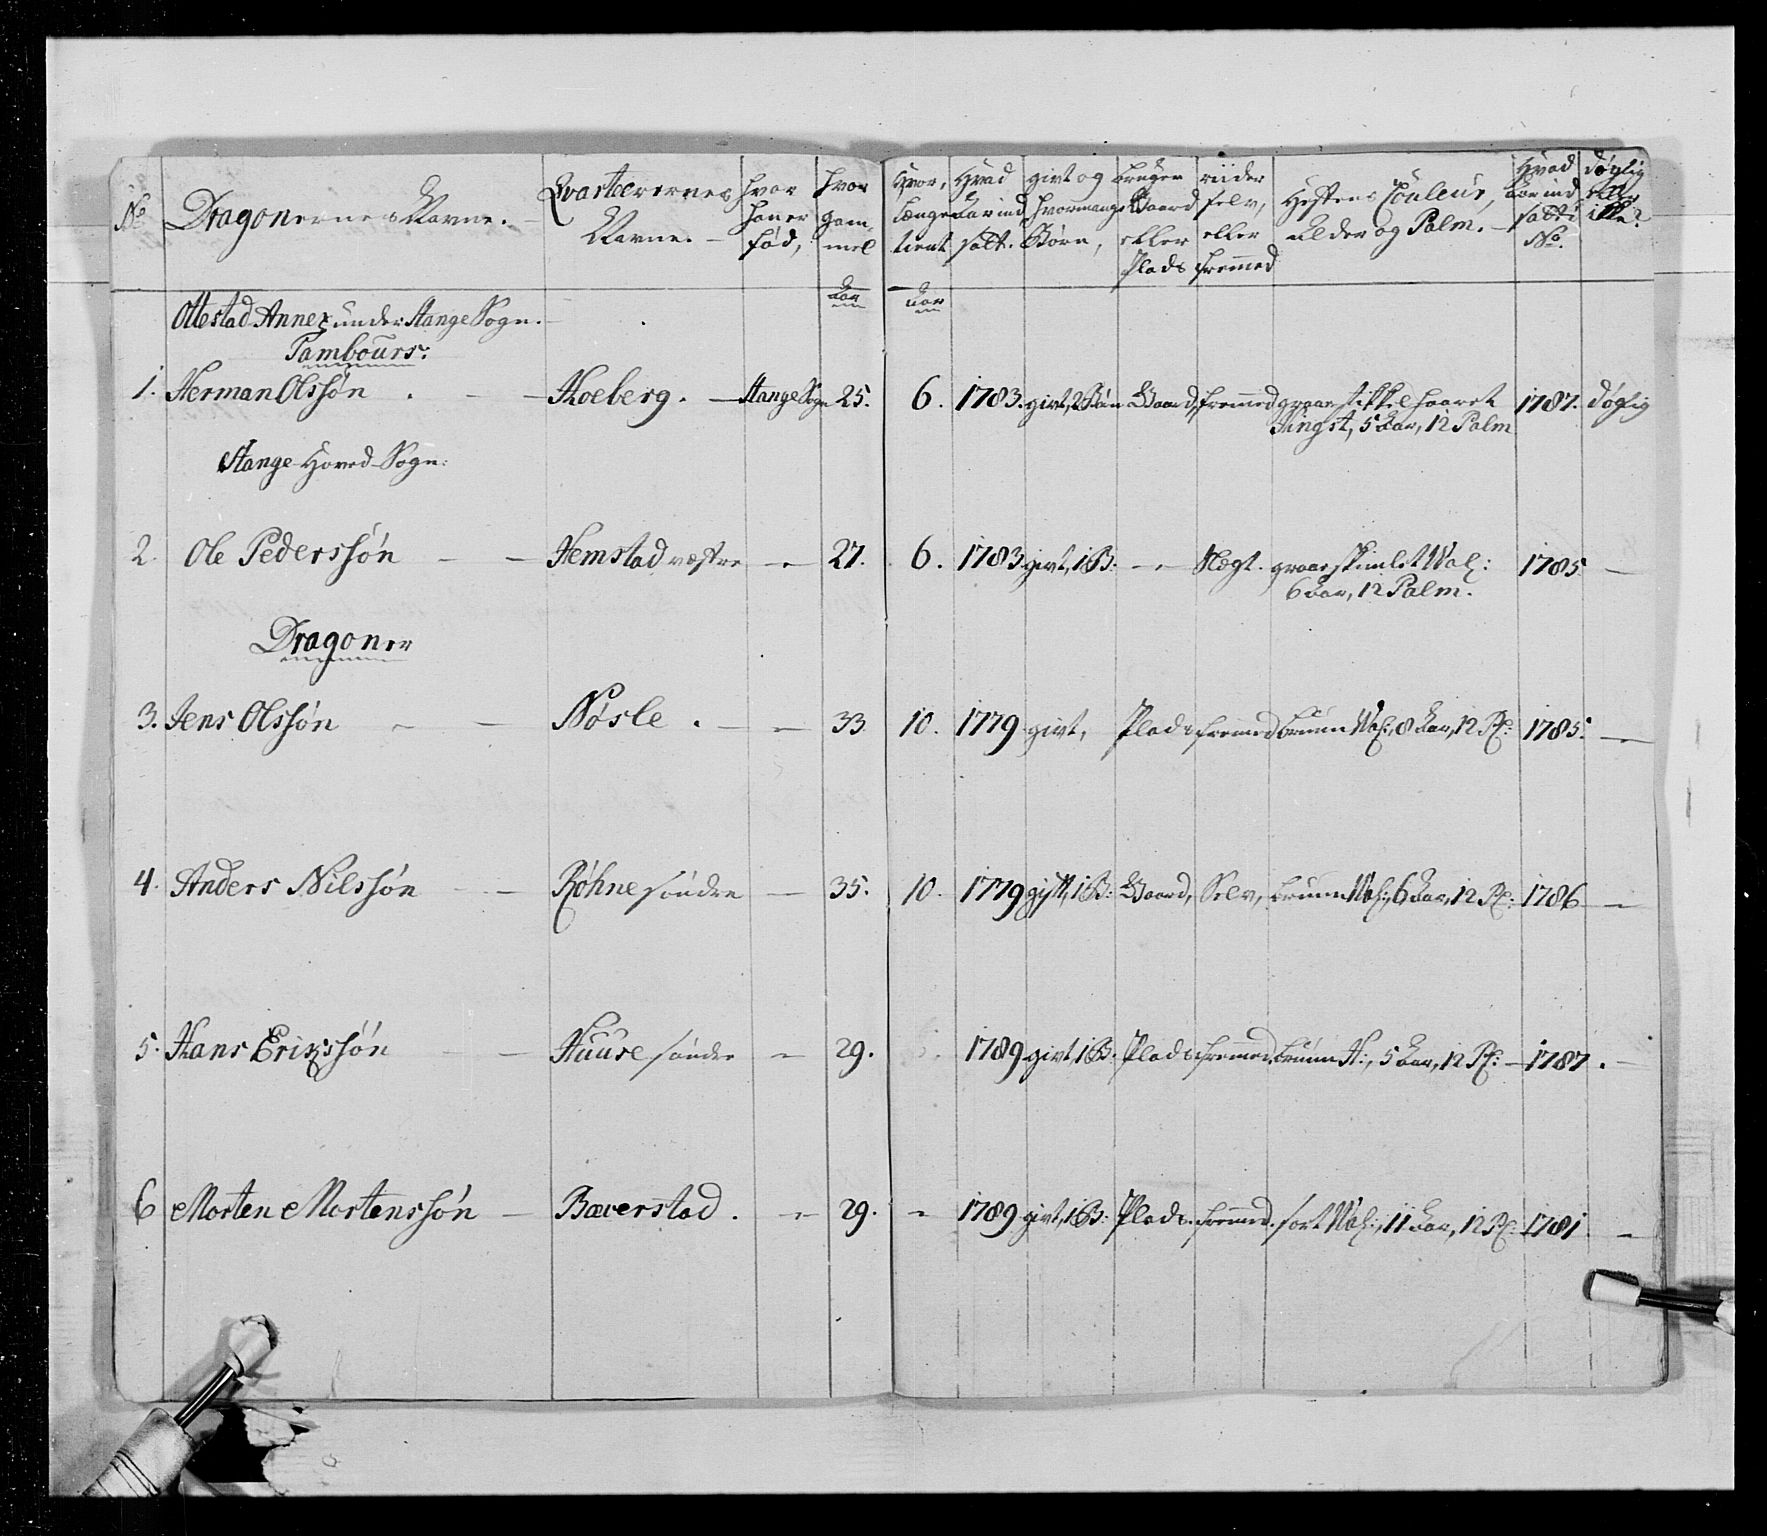 No | Dragonernes Navne. | Qvarteerernes Navne. | hvor han er fød, | hvor gammel | Hvor længe tient | Hvad Aar ind satt. | givt og hvormange Børn, | bruger Gaard eller Plads | riider selv, eller fremmed | Hestens Couleur, Alder og Palm. | Hvad Aar ind satt i No. | dygtig eller ikke?
Aar | Aar
Ottestad Annex under Stange Sogn.
Tambours:
1. Herman Olssøn | Hoeberg. | Stange Sogn | 25. | 6. | 1783. | givt, 2 Børn | Gaard, | fremmed | graae stikkelhaaret Hingst, 5 Aar, 12 Palm | 1787. | dygtig
Stange Hoved-Sogn:
2. Ole Pederssøn | Hemstad vestre | — | 27. | 6. | 1783 | givt, 1 B: | — | Nægt. | graaeskimlet Val: 6 Aar, 12 Palm. | 1785 | —
Dragoner
3. Jens Olssøn | Nøsle. | — | 33 | 10. | 1779 | givt, | Plads | fremmed | bruun Val:, 8 Aar, 12 P: | 1785. | —
4. Anders Nilssøn | Røhne søndre | — | 35. | 10. | 1779 | gift, 1 B: | Gaard, | Selv, | bruun Val:, 6 Aar, 12 P: | 1786 | —
5. Hans Erikssøn | Huuse søndre | — | 29. | 1789 | givt, 1 B. | Plads | fremmed. | bruun H:, 5 Aar, 12 P: | 1787. | —
6 Morten Mortenssøn | Bæverstad. | — | 29. | — | 1789 | givt, 1 B: | Plads. | fremmed. | sort Val:, 11 Aar, 12 P: | 1781 | —